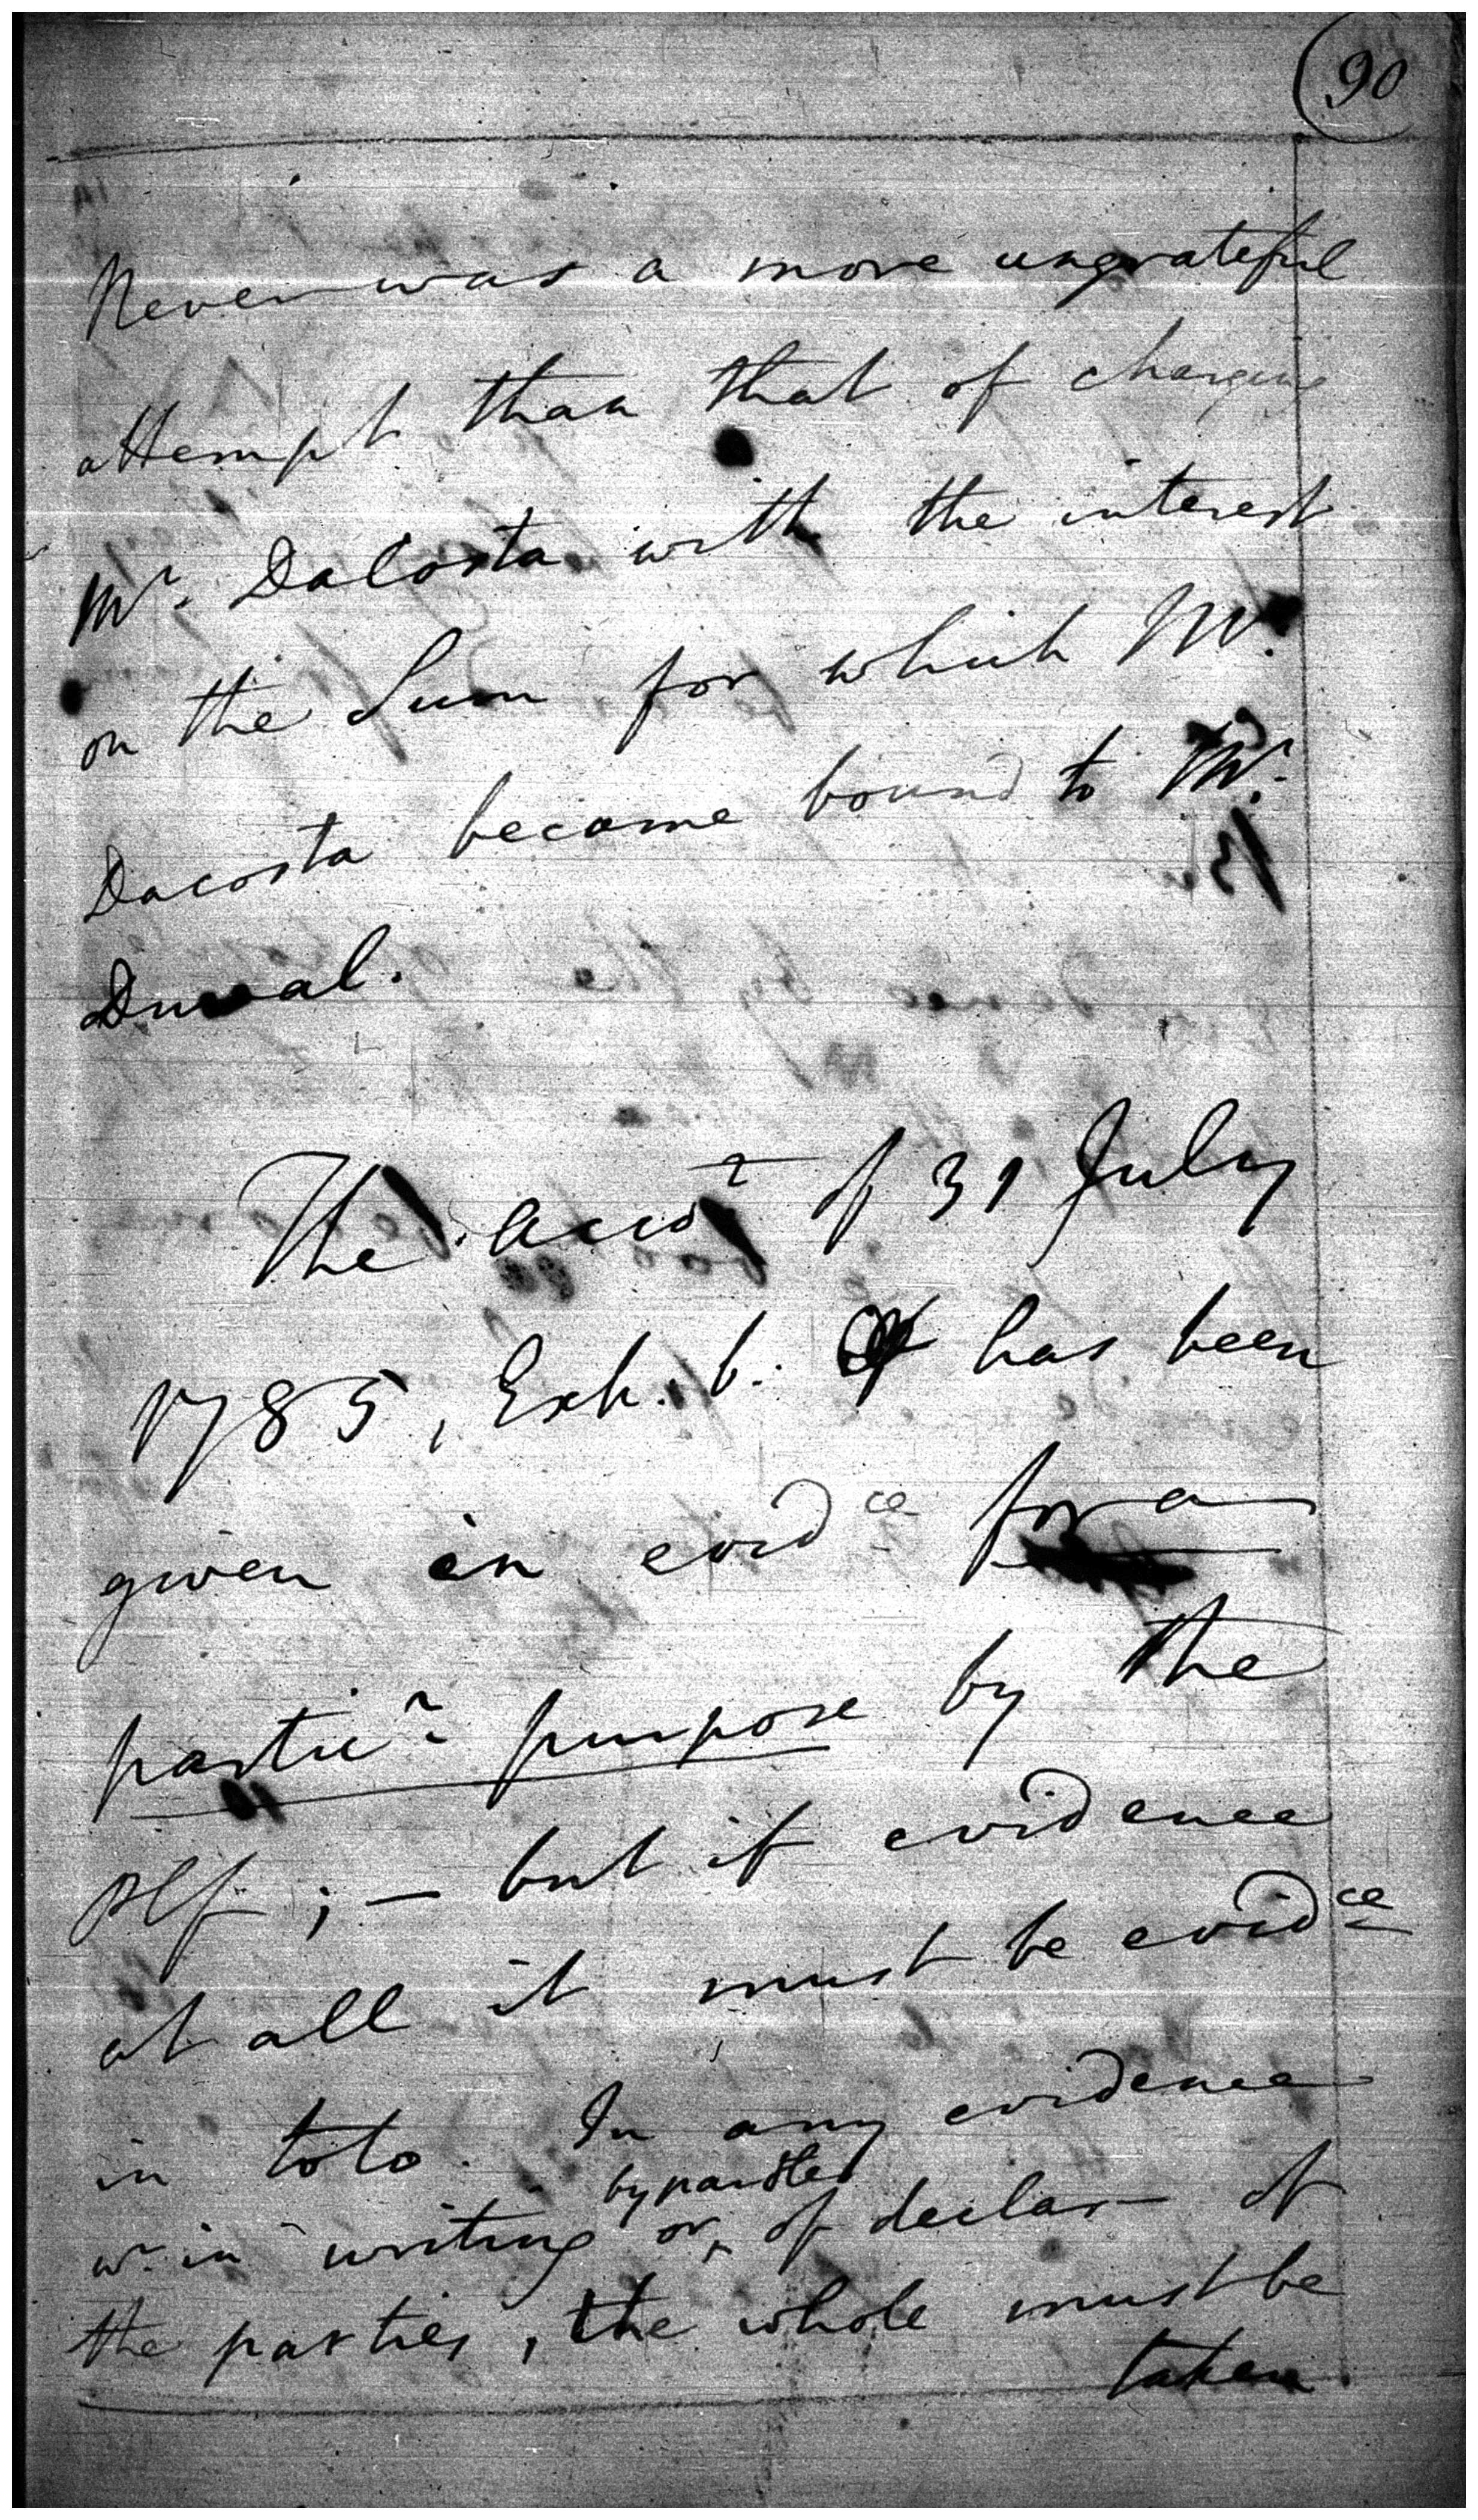 90
Never was a more ungrateful
attempt than that of charging
Mr. DaCosta with the interest
on the Sum for which Mr.
Dacosta became bound to Mr.
Duval.
The accot of 31 July
1785, Exh. b. has been
given in evidce for a
particr purpose by the
plf; – but if evidence
at all it must be evidce
in toto. In any evidence
by paroles
wr in writing or of declar– of
the parties, the whole must be
taken